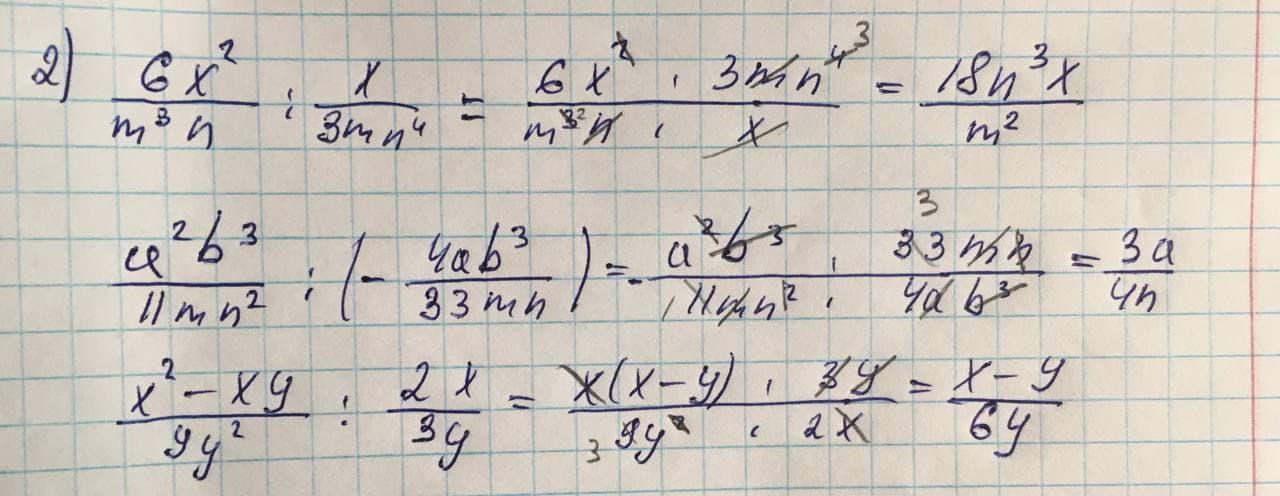 2) 6x²/m³n : x/3mn⁴ = 6x² · 3mn⁴ ³/m³ ² n · x = 18n³x/m²
a²b³/11mn² : (- 4ab³/33mn) = - a²b³ · 33 ³ mn/11mn² · 4ab³ = 3a/4n
x² - xy/9y² : 2x/3y = x(x-y) · 3y/9 ³ y² · 2x = x-y/6y